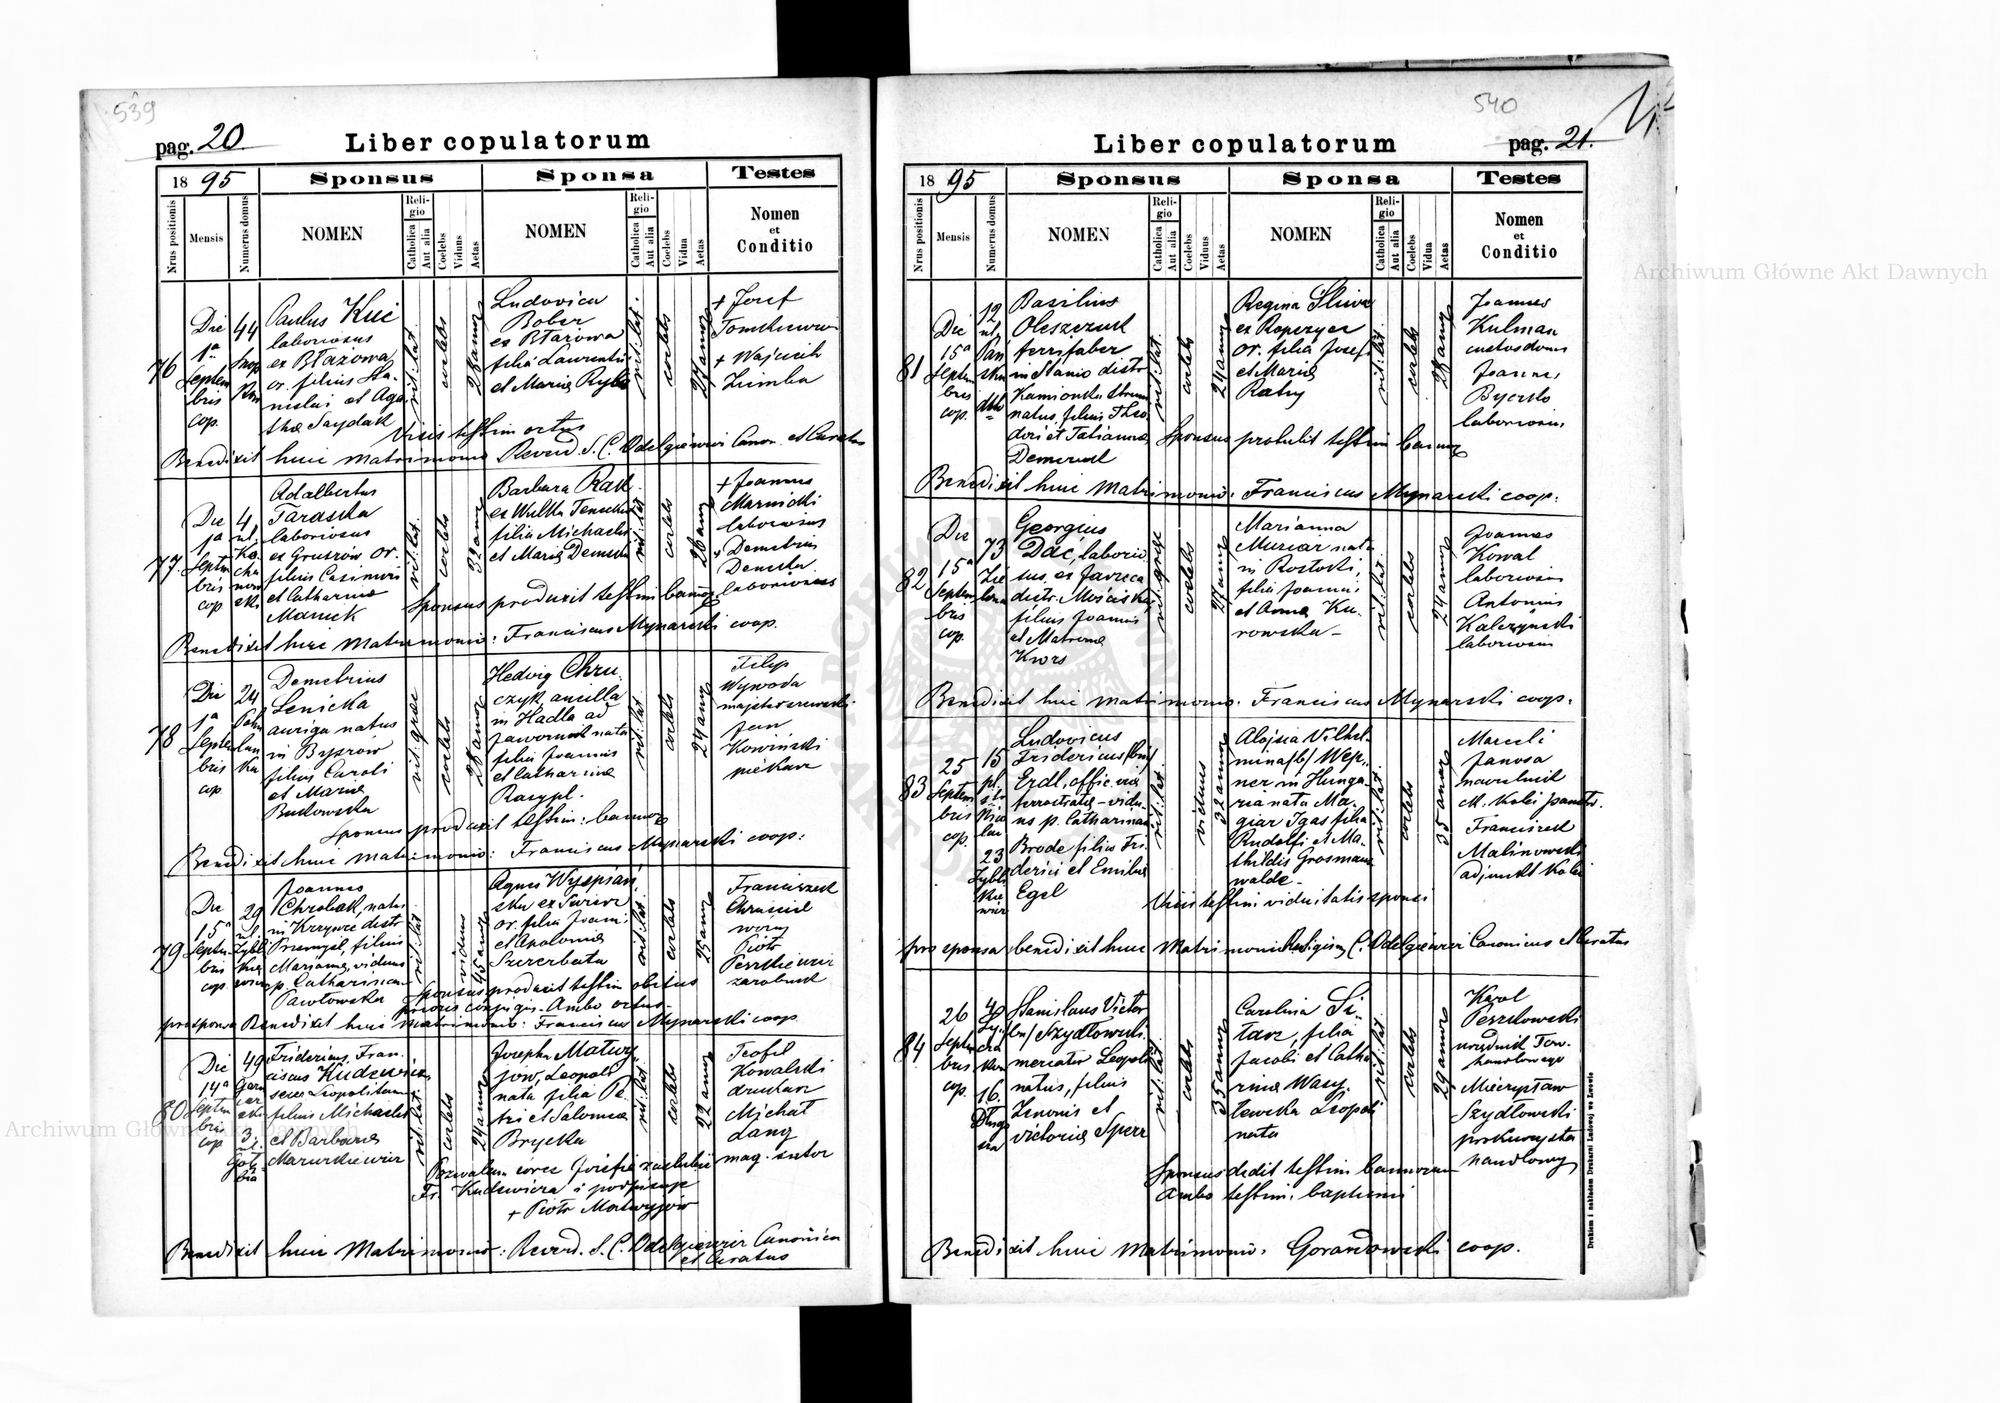 539
pag. 20
Liber copulatorum
18 95
Sponsus
Sponsa
Testes
Nrus positionis
Mensis
Numerus domus
NOMEN
Religio
Catholica
Aut alia
Coelebs
Viduus
Aetas
NOMEN
Religio
Catholica
Aut alia
Coelebs
Vidua
Aetas
Nomen
et
Conditio
76
Die
1ª
Septem
bris
cop.
44
Paulus Kuć
laboriosus
ex Błażowa
or. filius Sta-
nislai et Aga
thæ Saydak
rit. lat.
coelebs
28 annor
Ludovica
Bober
ex Błażowa
filia Laurentii
et Mariæ Ryba
rit. lat.
coelebs
27 annor
+ Josef
+ Wojciech
Ziemba
Visis testim ortus
Benedixit huic Matrimonio Reverd. S. C. Odelgiewicz Canon. et Curatus
77.
Die
1ª
Septem
bris
cop
4
ul.
Ko
cha
now
ski
Adalbertus
Taraska
laboriosus
ex Gruszów or.
filius Casimiri
et Catharinæ
Maniek
rit. lat.
coelebs
32 annor
Barbara Rak
ex Wulka
filia Michaelis
et Mariæ Demska
rit. lat.
coelebs
28 annor
+ Joannes
Marnicki
laboriosus
+ Demetrius
Demska
laboriosus
Sponsus produxit testim bannor
Benedixit huic Matrimonio: Franciscus Mynarski coop.
78
Die
1ª
Septem
bris
cop
24
Demetrius
Senicka
auriga natus
in Byszow
filius Caroli
et Mariæ
Bukowska
rit. græc
coelebs
28 annor
Hedvig Chru-
czyk, ancilla
in Hadla ad
Jawornik nata
filia Joannis
et Catharinæ
Raszpl.
rit. lat
coelebs
24 annor
Filip
Wywoda
majster szewski
Jan
Kowiński
piekarz
Sponsus produxit testim: bannor
Benedixit huic Matrimonio: Franciscus Mynarski coop:
79
Die
15ª
Septem
bris
cop.
29
ul.
Zybli
kie
wicza
Joannes
Chrobak, natus
in Krzywce distr
Przemyśl, filius
Mariannæ, viduus
p. Catharinam
Pawłowska
rit. lat
viduus
45 annor
Agnes Wyspiań
ska ex Turiew
or. filia Joan:
et Apoloniæ
Szczerbata
rit. lat.
coelebs
25 annor
Franciszek
Chruściel
woźny
Piotr
Peszkiewicz
zarobnik
Sponsus produxit testim obitus
prioris conjugis. Ambo ortus.
pro sponsa Benedixit huic Matrimonio: Franciscus Mynarski coop
80
Die
14ª
Septem
bris
cop
49
Garn
car
ska
3.
ul.
Fridericus, Fran-
ciscus Kudzewicz
Leopolitanus
filius Michaelis
et Barbaræ
Mazurkiewicz
rit. lat.
coelebs
24 annor
Josepha Matwy-
jów, Leopoli
nata filia Pe-
tri et Salomeæ
Brycka
rit. lat
coelebs
22 annor
Teofil
Kowalski
drukarz
Michał
Lang
mag. sutor
Pozwalam córce Józefie zaślubić
Fr. Kudzewicza i podpisuję
+ Piotr Matwyjów
Benedixit huic Matrimonio: Reverd. S. C. Odelgiewicz Canonicus
et Curatus
540
Liber copulatorum
pag. 21.
18 95
Sponsus
Sponsa
Testes
Nrus positionis
Mensis
Numerus domus
NOMEN
Religio
Catholica
Aut alia
Coelebs
Viduus
Aetas
NOMEN
Religio
Catholica
Aut alia
Coelebs
Vidua
Aetas
Nomen
et
Conditio
81
Die
15ª
Septem
bris
cop.
12
ul.
Pań
ska
Basilius
Oleszczuk
ferrifaber
in Stanio distr
Kamionka Strum
natus, filius Theo
dori et Tatiannæ
Demczuk
rit. lat.
coelebs
24 annor
Regina Śliwa
ex Ropczyce
or. filia Josefi
et Mariæ
Rataj
rit. lat.
coelebs
28 annor
Joannes
Kulman
custos domus
Joannes
Byczko
laboriosus
Sponsus protulit testim bannor
Benedixit huic Matrimonio: Franciscus Mynarski coop.
82
Die
15ª
Septem
bris
cop.
73
Zie
lona
Georgius
Dac, laborio
sus, ex
distr. Mościska
filius Joannis
et Matronæ
Kwos
rit. græc
coelebs
27 annor
Marianna
Musiar nata
in Rostoki,
filia Joannis
et Annæ Ku-
rowska-
rit. lat.
coelebs
24 annor
Joannes
Kowal
laboriosus
Antonius
Kalczyński
laboriosus
Benedixit huic Matrimonio. Franciscus Mynarski coop.
83
25
Septem
bris
cop.
15
pl.
23
Zybli
kie
wicza
Ludovicus
Fridericus (bin)
Erdl, offic. viæ
ferrostratæ - vidu-
us p. Catharinam
Brode filius Fri-
derici et Emiliæ
Egel
rit. lat.
viduus
32 annor
Aloisia Vilhel-
mina (b) Wep-
ner in Hunga-
ria nata Ma-
giar Igas filia
Rudolfi et Ma-
thildis Grosman
walde-
rit. lat.
coelebs
35 annor
Marceli
Janosa
naczelnik
st. kolei państw.
Franciszek
Malinowski
adjunkt kolei
Visis testim viduitatis sponsi
pro sponsa benedixit huic Matrimonio C. Odelgiewicz Canonicus et Curatus
84
26
Septem
bris
cop.
16.
Długo
sza
Stanislaus Victor
(bin) Szydłowski
mercator Leopoli
natus, filius
Zenonis et
Victoriæ Sperr
rit. lat.
coelebs
35 annor
Carolina Si-
tarz, filia
Jacobi et Catha
rinæ Wasy-
lewska Leopoli
nata
rit. lat.
coelebs
29 annor
Karol
Peszkowski
urzędnik Tow.
handlowego
Mieczysław
Szydłowski
prokurzysta
handlowy
Sponsus dedit testim bannorum
Ambo testim. baptismi
Benedixit huic Matrimonio. Gorazdowski coop.
Drukiem i nakładem Drukarni Ludowej we Lwowie
Archiwum Główne Akt Dawnych
Archiwum Główne Akt Dawnych